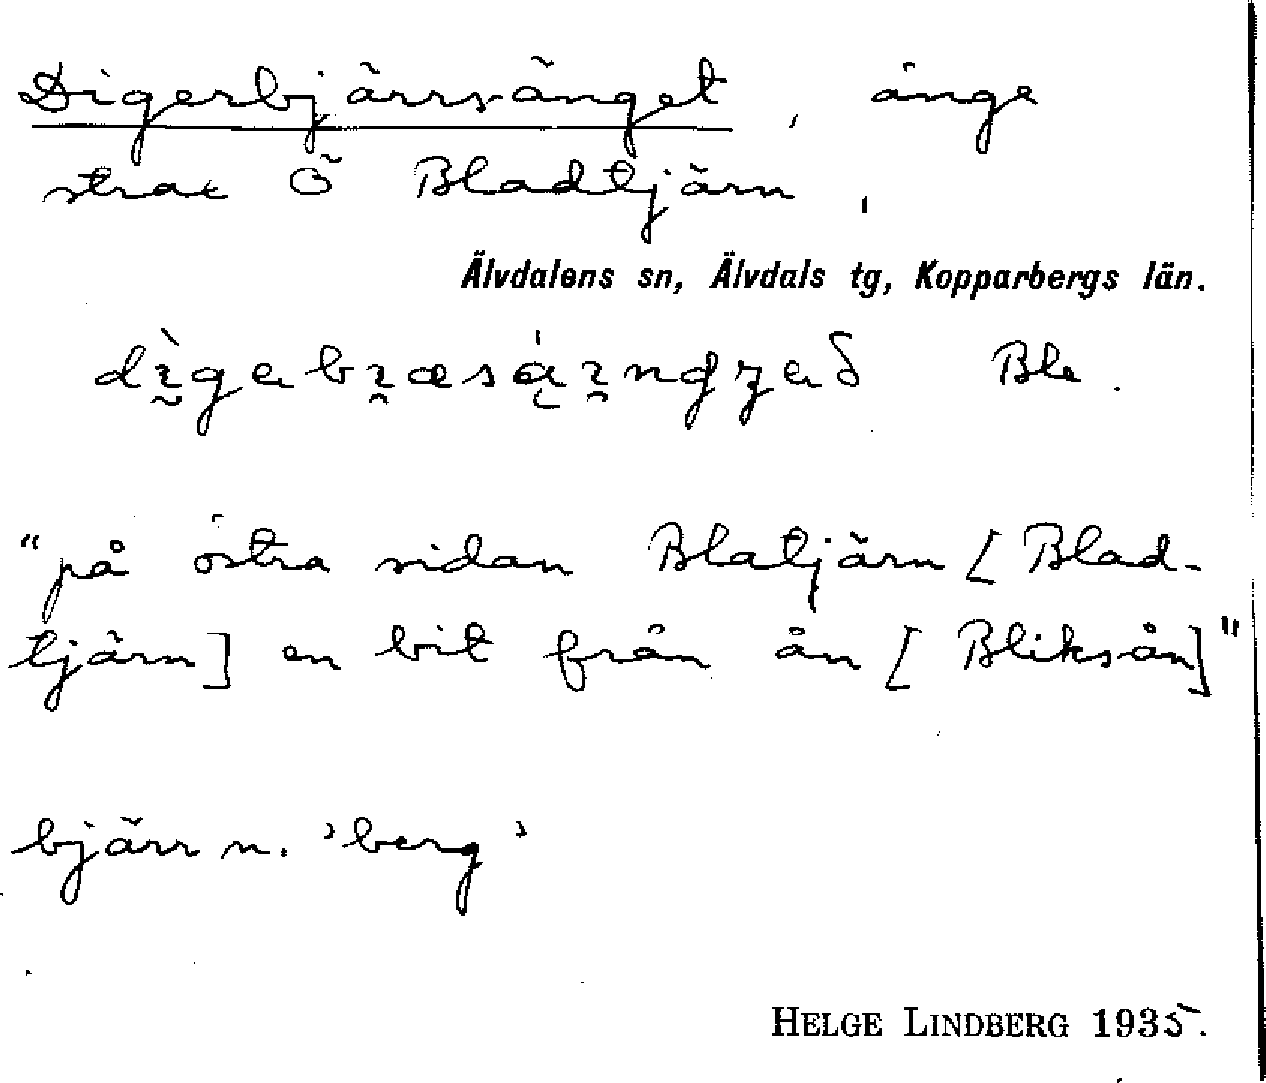 Digerbjärrsänget, änge
strax Ö Bladtjärn,
Älvdalens sn, Älvdals tg, Kopparbergs län.
Ble.
"på östra sidan Blatjärn [Blad-
tjärn] en bit från ån [Bliksån]"
bjärr n. 'berg'
HELGE LINDBERG 1935.